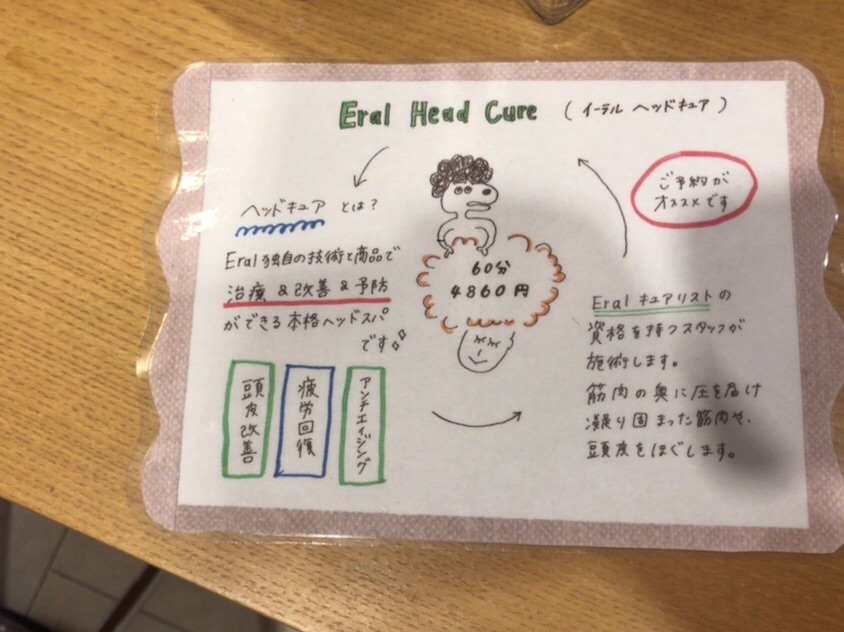 Eral Head Cure (イーラル ヘッドキュア)
ご予約が
オススメです
ヘッドキュア とは?
Eral独自の技術と商品で
治療 & 改善 & 予防
ができる本格ヘッドスパ
です
60分
4860円
Eralキュアリストの
資格を持つスタッフが
施術します。
筋肉の奥に圧を届け
凝り固まった筋肉や、
頭皮をほぐします。
頭皮改善
疲労回復
アンチエイジング